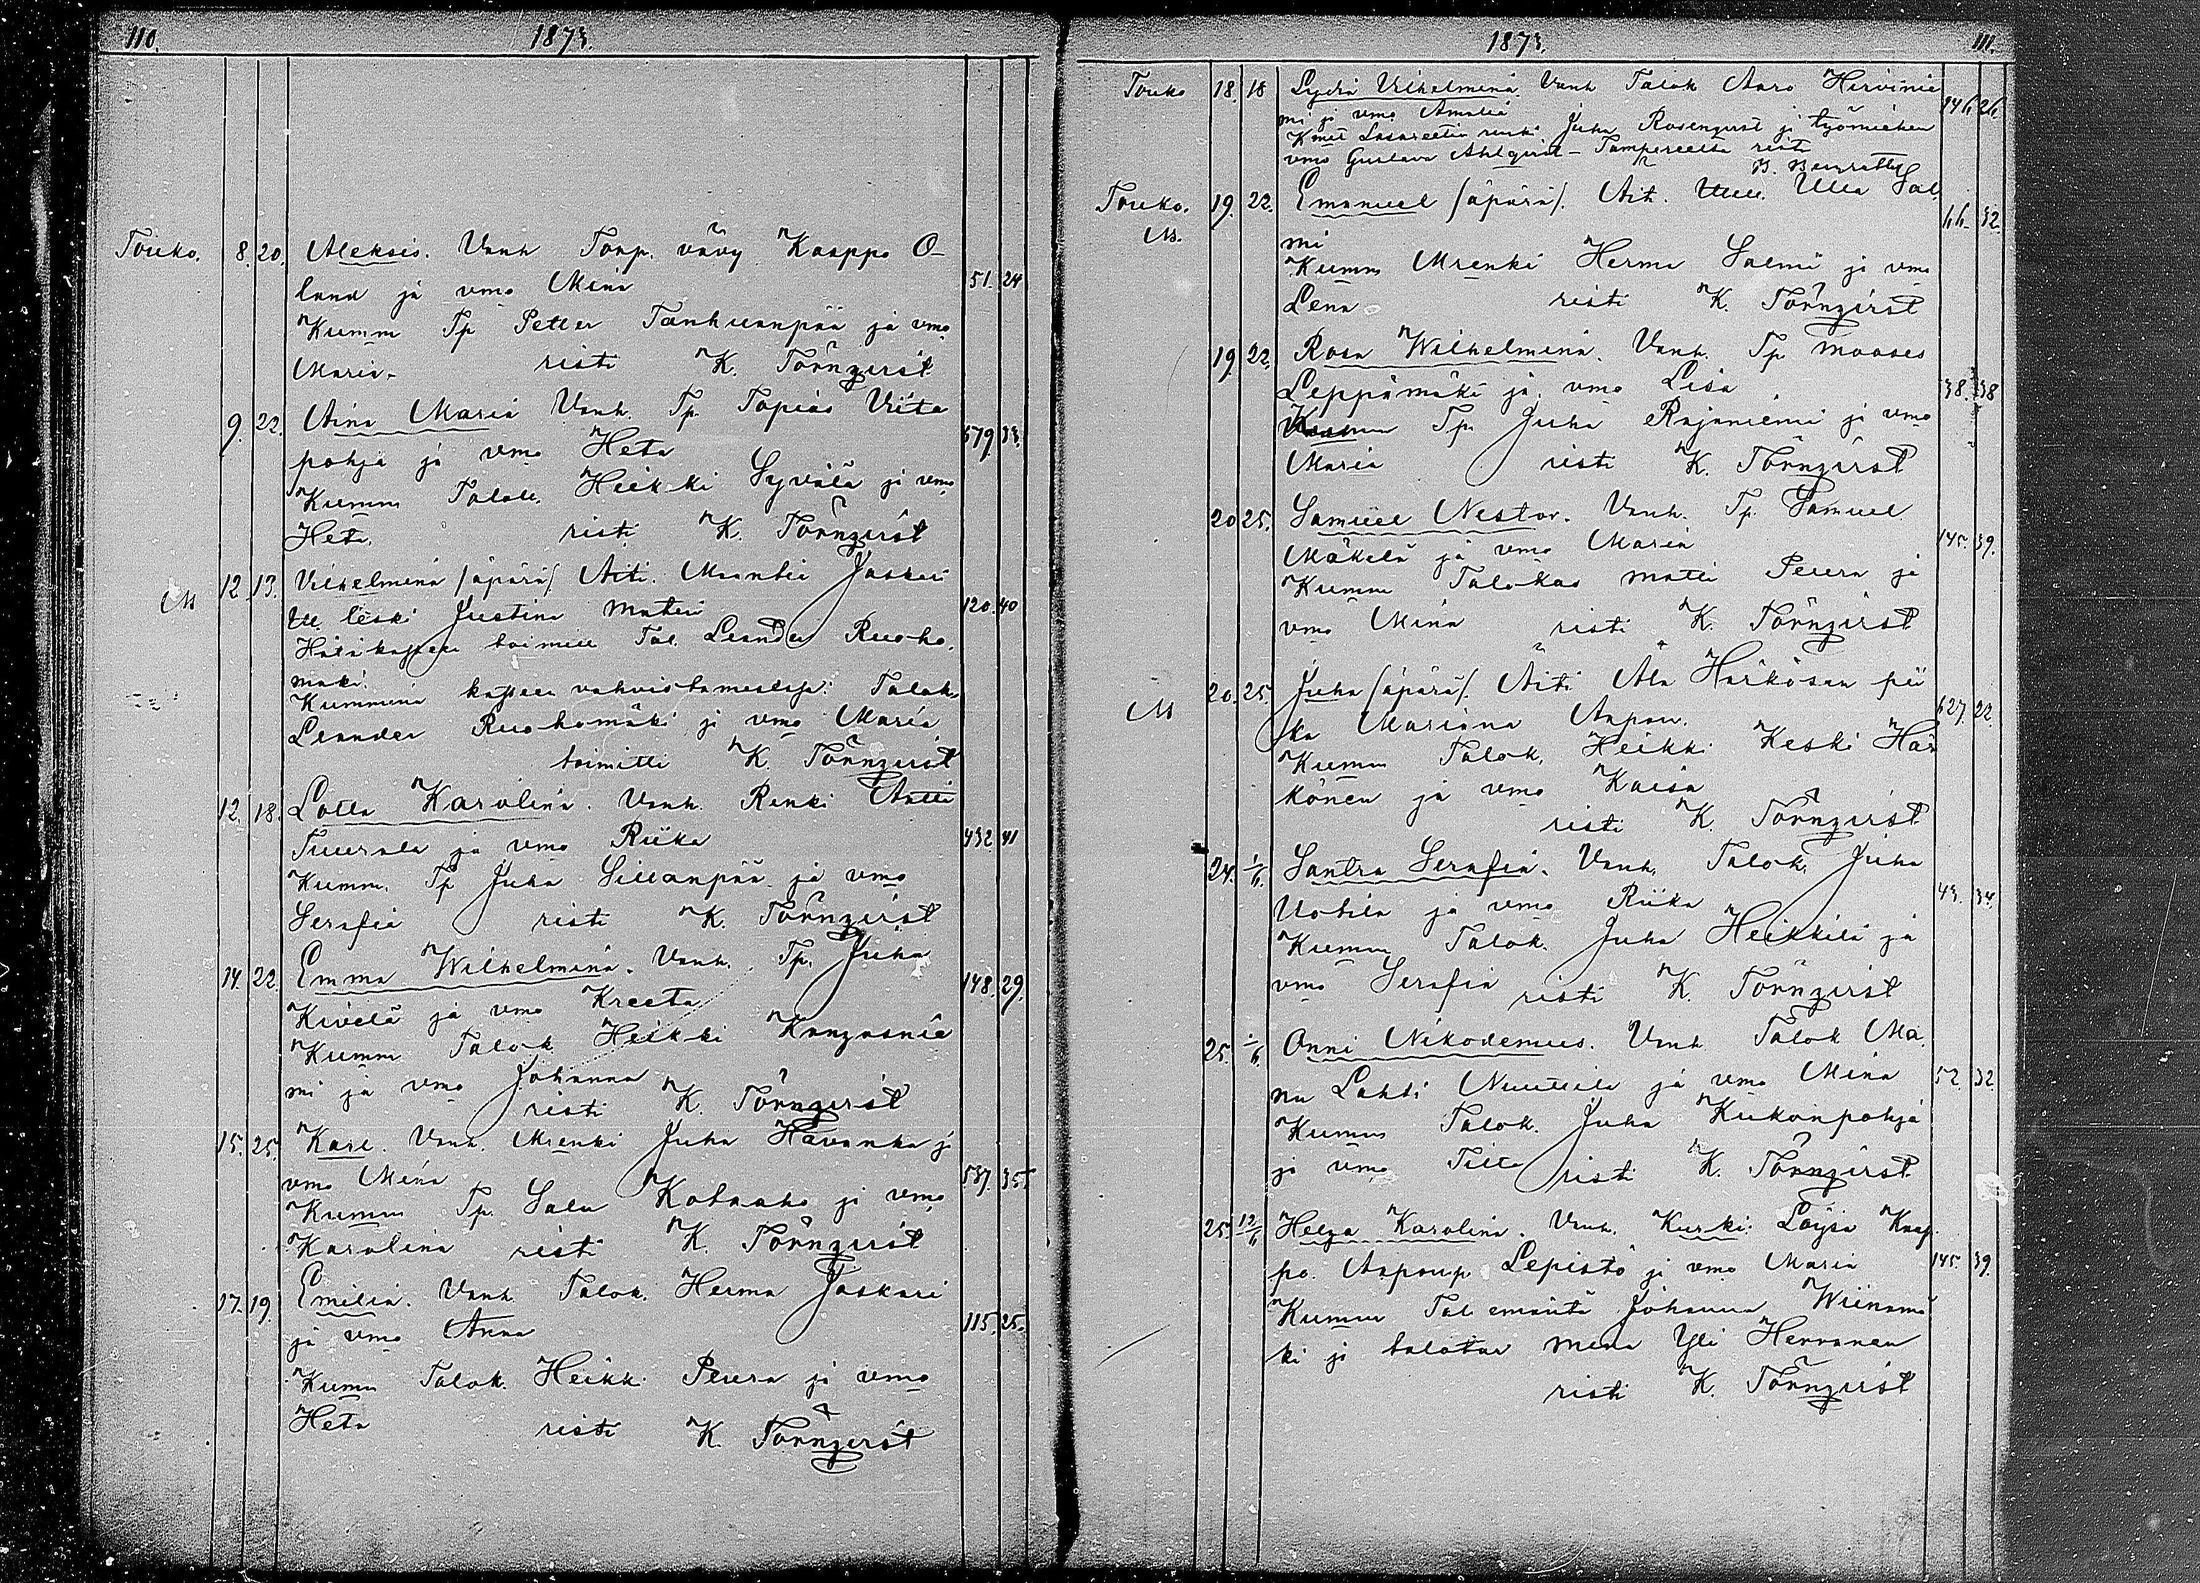 110. 1873.
Touko. 8. 20. Aleksis. Vanh Torp. vävy Kaappo O-
land ja vmo Mina 51. 24
Kumm Tp Petter Tanhuanpää ja vmo
Maria- risti K. Törnqvist
9. 22. Aina Maria Vanh. Tp. Topias Viita
pohja ja vmo Heta 579. 33.
Kumm Talok. Heikki Syvälä ja vmo
Heta. risti K. Törnqvist
M 12. 13. Vilhelmina /äpärä/ Äiti. Jaskari
leski Justina 120. 40
Hätäkasteen toimitt Tal. Leander Ruoho-
mäki.
Kummina kasteen vahvistamisessa: Talok
Leander Ruohomäki ja vmo Maria
toimitti K. Törnqvist
12. 18. Lotta Karolina. Vanh. Renki Antti
Tuurala ja vmo Riika 432. 41
Kumm. Tp Juha Sillanpää ja vmo
Serafia risti K. Törnqvist
14. 22. Emma Wilhelmina. Vanh. Tp. Juha
Kivelä ja vmo Kreeta 148. 29.
Kumm Talok Heikki Kangasnie
mi ja vmo Johanna
risti K. Törnqvist
15. 25. Karl. Vanh. Mrenki Juha Havanka ja
vmo Mina 537. 35.
Kumm Tp. Salu ja vmo
Karolina risti K. Törnqvist
17. 19. Emilia. Vanh Talok. Herma Jaskari
ja vmo Anna 115. 25.
Kumm Talok. Heikki Peura ja vmo
Heta risti K. Törnqvist
1873. 111.
Touko 18. 18 Lydia Vilhelmina. Vanh Talok Aaro Hirvinie
mi ja vmo Amalia 146. 26.
Kmit Lasareetin renki Juha Rosenqvist ja työmiehen
vmo Gustava Ahlqvist - Tampereelta risti
Touko. 19. 22. Emanuel /äpärä/. Äit. Ulla Sal
M. mi 66. 32.
Kumm Mrenki Herma Salmi ja vmo
Lena risti K. Törnqvist
19. 22. Rosa Wilhelmina. Vanh. Tp Mooses
Leppämäki ja vmo Lisa 38. 38
Kumm Tp. Juha Rajaniemi ja vmo
Maria risti K. Törnqvist
20 25. Samuel Nestor. Vanh. Tp. Samuel
Mäkelä ja vmo Maria 145. 39.
Kumm Talokas Matti Peura ja
vmo Mina risti K. Törnqvist
M 20. 25. Juha /äpärä/. Äiti Ala Härkösen pii
ka Mariana Aapon. 627. 22
Kumm Talok. Heikki Keski Här
könen ja vmo Kaisa
risti K. Törnqvist
24. 1/6. Santra Serafia. Vanh. Talok. Juha
Uotila ja vmo Riika 43. 34.
Kumm Talok. Juha Heikkilä ja
vmo Serafia risti K. Törnqvist
25. 1/6 Onni Nikodemus. Vanh Talok Ma
nu Lahti ja vmo Mina 52. 32.
Kumm Talok. Juha Kiikonpohja
ja vmo Tilta risti K. Törnqvist
25. 12/6 Helga Karolina. Vanh. Kaap
po. Aaponp. Lepistö ja vmo Maria 145. 39.
Kumm Tal emäntä Johanna Wiinamä
ki ja talotar Mina Yli Hervanen
risti K. Törnqvist